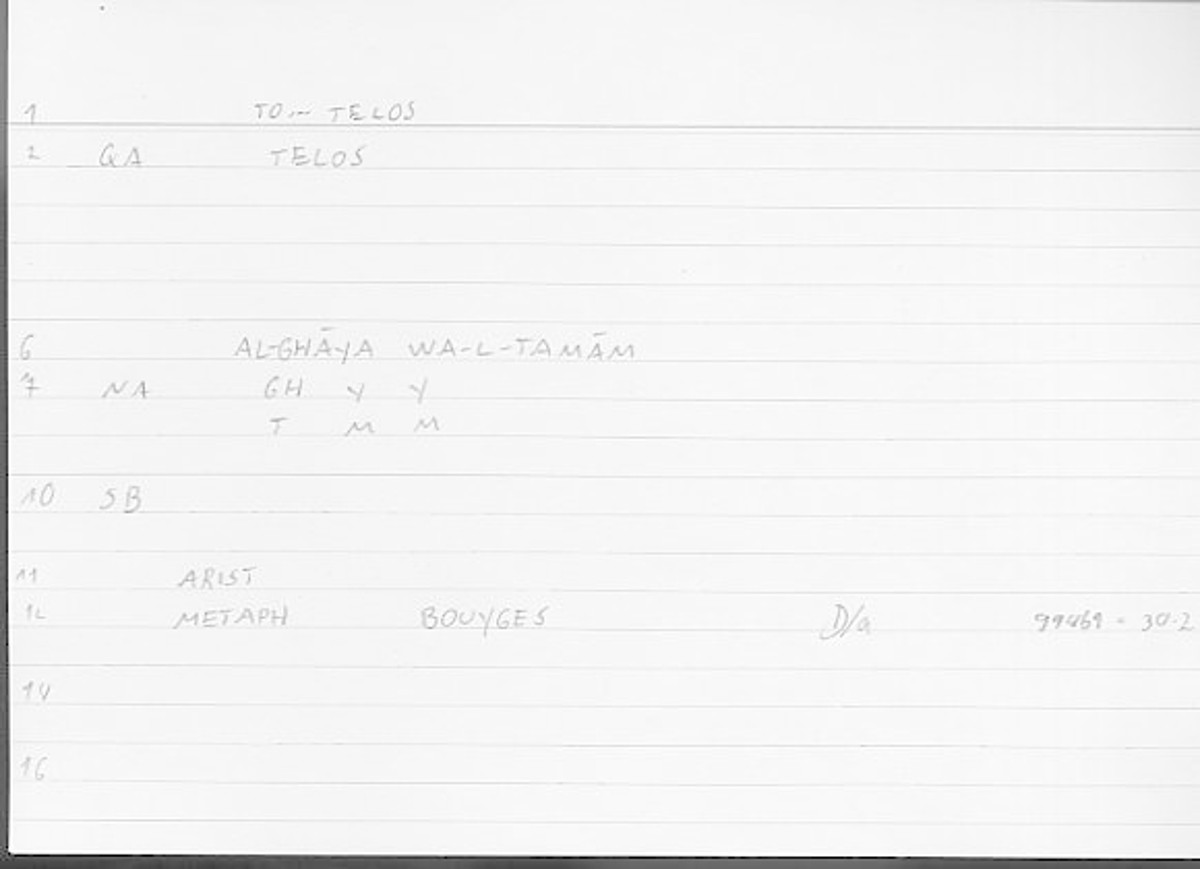 1 TO... TELOS
2 QA TELOS
6 AL-GHĀYA WA-L-TAMĀM
7 NA GH Y Y
T M M
10 SB
11 ARIST
12 METAPH BOUYGES D/a
14
16